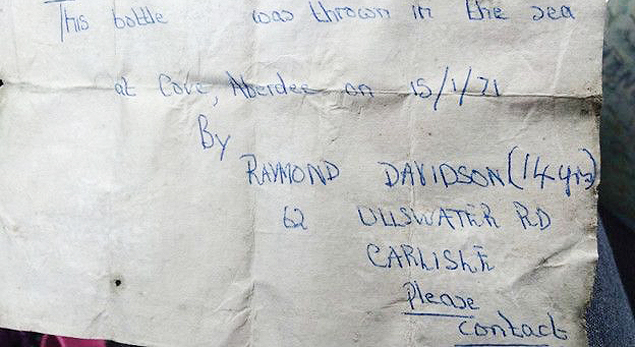 This bottle was thrown in the sea
at Cove, Aberdee on 15/1/71
By
RAYMOND DAVIDSON (14 yrs)
62 ULLSWATER RD
CARLISLE
Please
contact